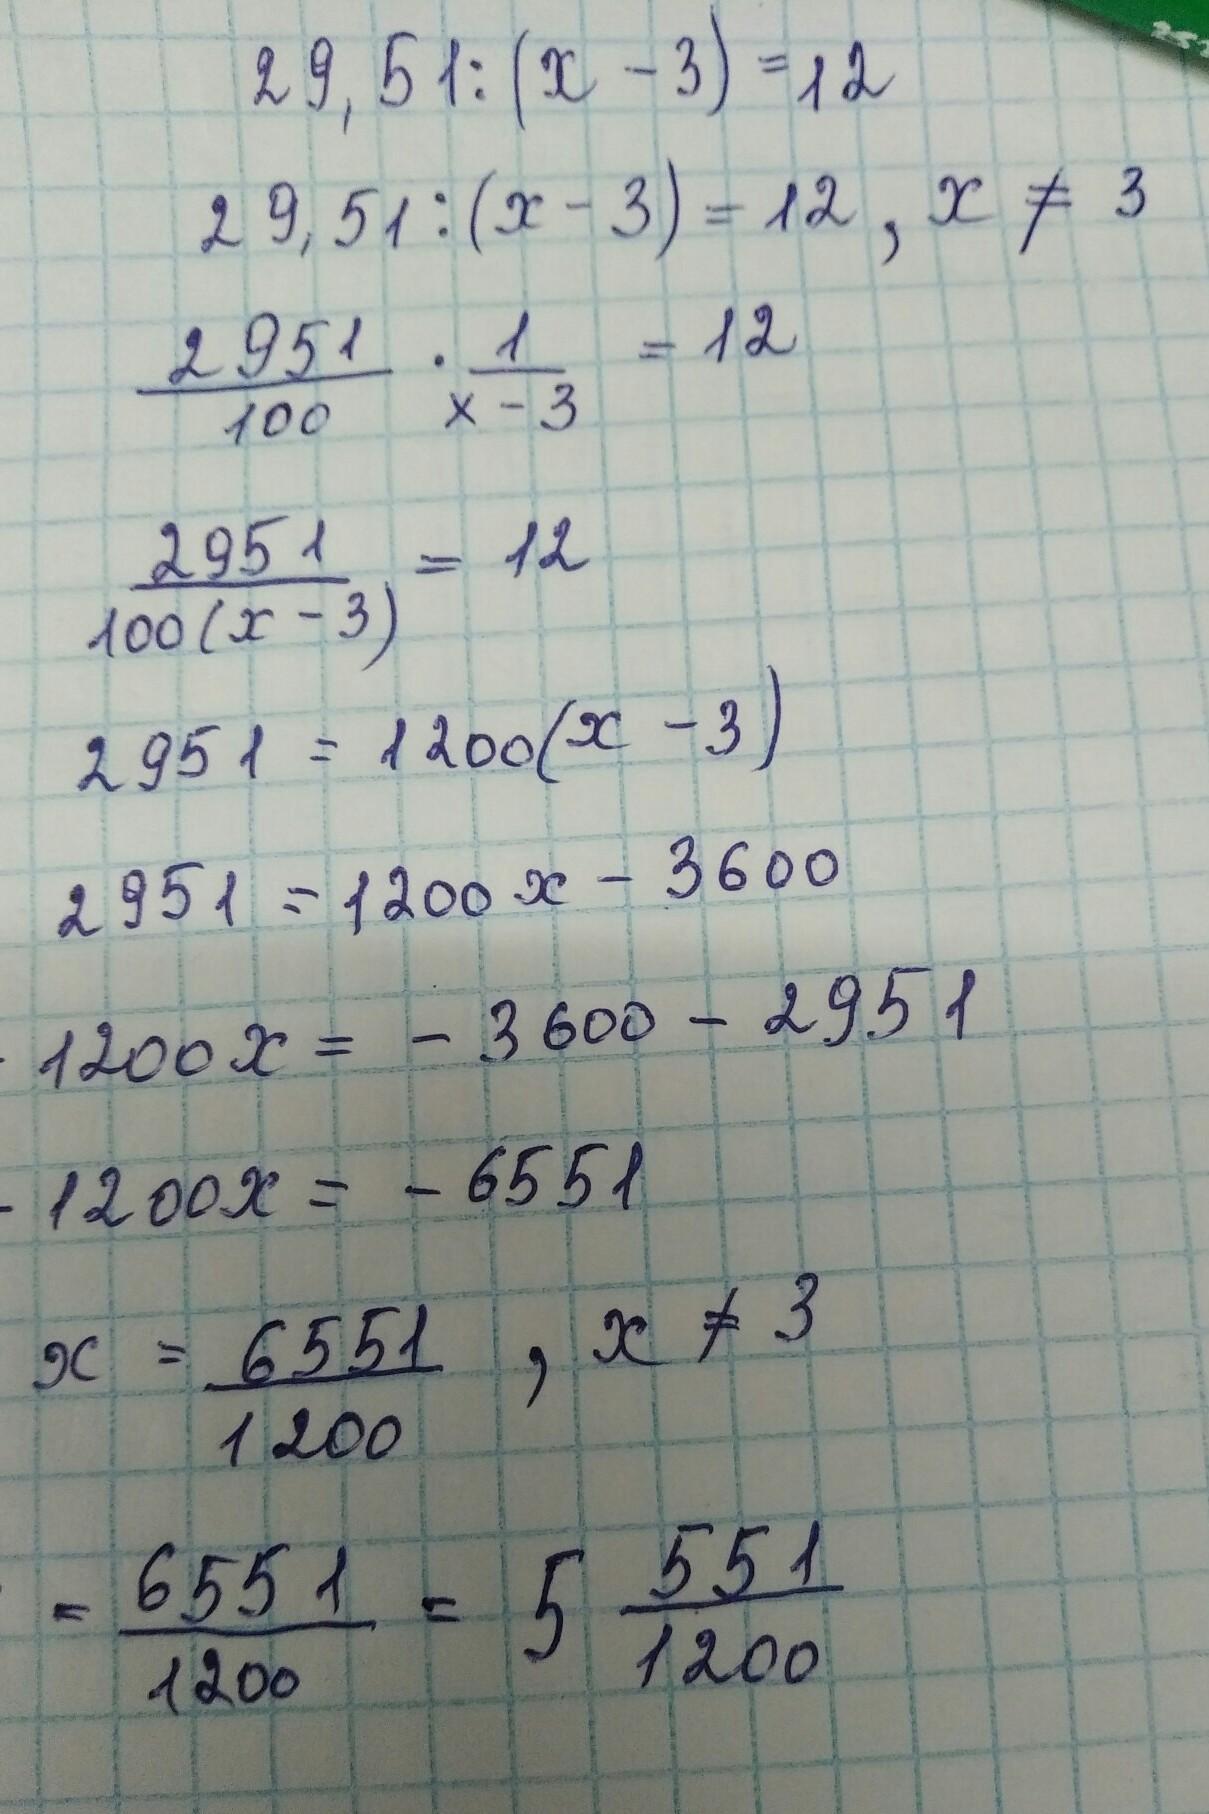 29,51:(x-3)=12
29,51:(x-3)=12, x≠3
2951/100 · 1/x-3 = 12
2951/100(x-3) = 12
2951 = 1200(x-3)
2951 = 1200x - 3600
- 1200x = - 3600 - 2951
- 1200x = - 6551
x = 6551/1200, x≠3
= 6551/1200 = 5 551/1200